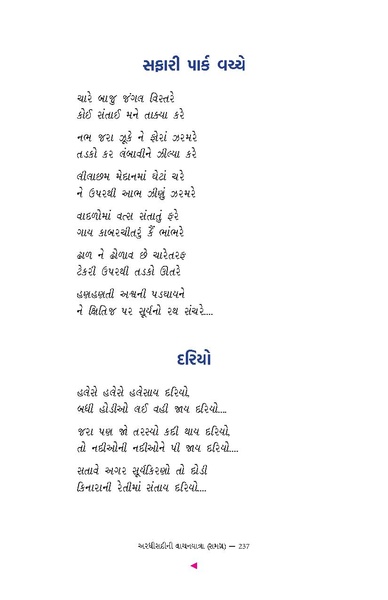 સફારી પાર્ક વચ્ચે
ચારે બાજુ જંગલ વિસ્તરે
કોઈ સંતાઈ મને તાક્યા કરે
નભ જરા ઝૂકે ને ફોરાં ઝરમરે
તડકો કર લંબાવીને ઝીલ્યા કરે
લીલાછમ મેદાનમાં ઘેટાં ચરે
ને ઉપરથી આભ ઝીણું ઝરમરે
વાદળોમાં વત્સ સંતાતું ફરે
ગાય કાબરચીતરું કૈં ભાંભરે
ઢાળ ને ઢોળાવ છે ચારેતરફ
ટેકરી ઉપરથી તડકો ઊતરે
હણહણતી અશ્વની પડઘાયને
ને ક્ષિતિજ પર સૂર્યનો રથ સંચરે....
દરિયો
હલેસે હલેસે હલેસાય દરિયો,
બધી હોડીઓ લઈ વહી જાય દરિયો....
જરા પણ જો તરસ્યો કદી થાય દરિયો,
તો નદીઓની નદીઓને પી જાય દરિયો....
સતાવે અગર સૂર્યકિરણો તો દોડી
કિનારાની રેતીમાં સંતાય દરિયો....
અરધીસદીની વાચનયાત્રા (સમગ્ર) — 237